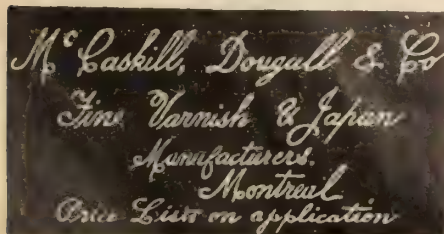 McCaskill, Dougall & Co
Fine Varnish & Japan
Manufacturers.
Montreal
Price List on application